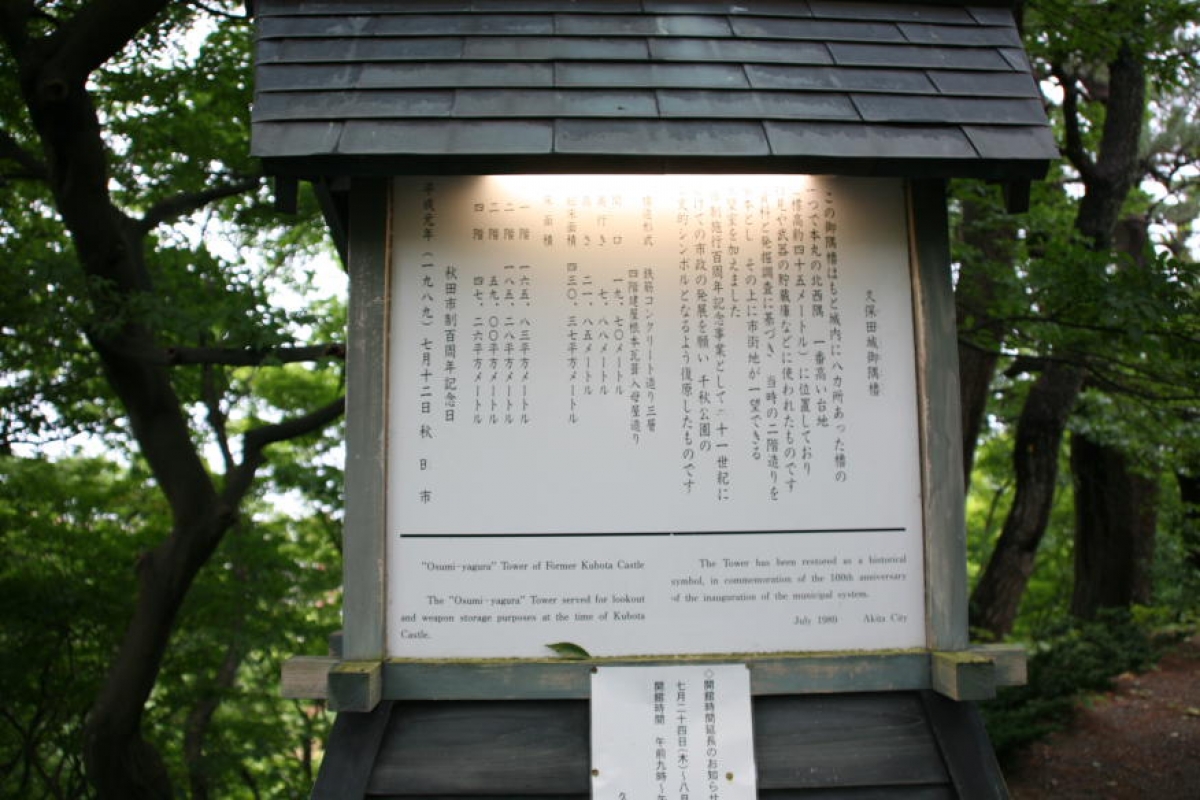 久保田城御隅櫓
この御隅櫓はもと城内に八カ所あった櫓の
一つで本丸の北西隅 一番高い台地
標高約四十五メートル）に位置しており
見や武器の貯蔵庫などに使われたものです
資料と発掘調査に基づき 当時の二階造りを
本とし その上に市街地が一望できる
望室を加えました
市制施行百周年記念事業として二十一世紀に
けての市政の発展を願い 千秋公園の
史的シンボルとなるよう復原したものです
構造形式 鉄筋コンクリート造り三層
四階建屋根本瓦葺入母屋造り
間口 一九．七〇メートル
奥行き 七．八八メートル
高さ 二一．八五メートル
総床面積 四三〇．三七平方メートル
床面積
一階 一六五．八三平方メートル
二階 一八五．二八平方メートル
三階 五九．〇〇平方メートル
四階 四七．二六平方メートル
秋田市制百周年記念日
平成元年（一九八九）七月十二日 秋 田 市
"Osumi-yagura" Tower of Former Kubota Castle
The "Osumi-yagura" Tower served for lookout
and weapon storage purposes at the time of Kubota
Castle.
The Tower has been restored as a historical
symbol, in commemoration of the 100th anniversary
of the inauguration of the municipal system.
July 1989 Akita City
◇開館時間延長のお知らせ
七月二十四日(木)〜八月
開館時間 午前九時〜午
久